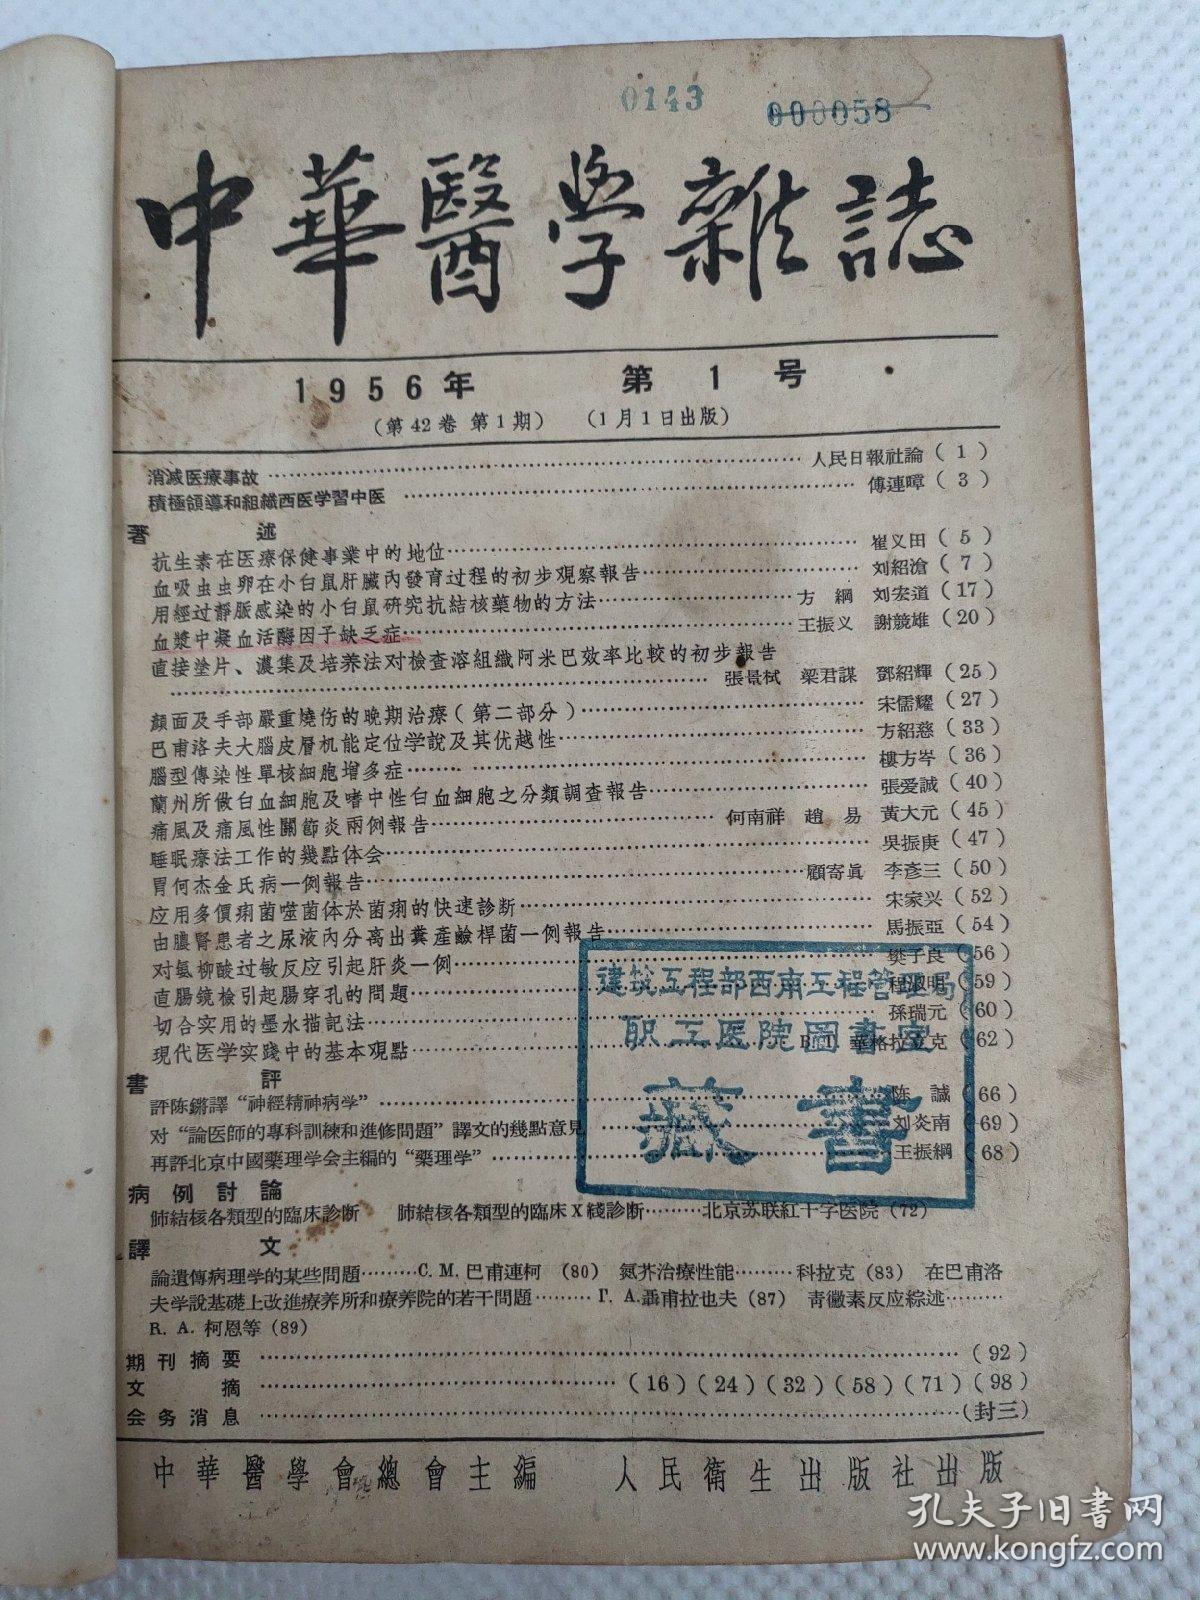 0143 000058
中華醫学雜誌
1956年 第1号
(第42卷 第1期) (1月1日出版)
消滅医療事故 人民日報社論 (1)
積極領導和組織西医学習中医 傅連暲 (3)
著 述
抗生素在医療保健事業中的地位 崔义田 (5)
血吸虫虫卵在小白鼠肝臟內發育过程的初步观察報告 刘紹滄 (7)
用經过靜脈感染的小白鼠研究抗結核藥物的方法 方綱 刘宏道 (17)
血漿中凝血活酶因子缺乏症 王振义 謝競雄 (20)
直接塗片、濃集及培养法对檢查溶組織阿米巴效率比較的初步報告
張景栻 梁君謀 鄧紹輝 (25)
顏面及手部嚴重燒伤的晚期治療(第二部分) 宋儒耀 (27)
巴甫洛夫大腦皮層机能定位学說及其优越性 方紹慈 (33)
腦型傳染性單核細胞增多症 樓方岑 (36)
蘭州所做白血細胞及嗜中性白血細胞之分類調查報告 張爱誠 (40)
痛風及痛風性關節炎兩例報告 何南祥 趙易 黃大元 (45)
睡眠療法工作的幾點体会 吳振庚 (47)
胃何杰金氏病一例報告 顧寄眞 李彥三 (50)
应用多價痢菌噬菌体於菌痢的快速診断 宋家兴 (52)
由膿腎患者之尿液內分离出糞產鹼桿菌一例報告 馬振亞 (54)
对氨柳酸过敏反应引起肝炎一例 樊子良 (56)
直腸鏡檢引起腸穿孔的問題 程淑明 (59)
切合实用的墨水描記法 孫瑞元 (60)
現代医学实践中的基本观點 華格拉拉克 (62)
建筑工程部西南工程管理局
职工医院圖書室
藏書
書 評
評陈鏘譯“神經精神病学” 陈誠 (66)
对“論医師的專科訓練和進修問題”譯文的幾點意見 刘炎南 (69)
再評北京中國藥理学会主編的“藥理学” 王振綱 (68)
病例討論
肺結核各類型的臨床診断 肺結核各類型的臨床X綫診断 北京苏联紅十字医院 (72)
譯 文
論遺傳病理学的某些問題 С. М. 巴甫連柯 (80) 氮芥治療性能 科拉克 (83) 在巴甫洛
夫学說基礎上改進療养所和療养院的若干問題 Г. А. 聶甫拉也夫 (87) 青黴素反应綜述
R. A. 柯恩等 (89)
期刊摘要 (92)
文 摘 (16)(24)(32)(58)(71)(98)
会务消息 (封三)
中華醫學會總會主編 人民衛生出版社出版
孔夫子旧书网
www.kongfz.com